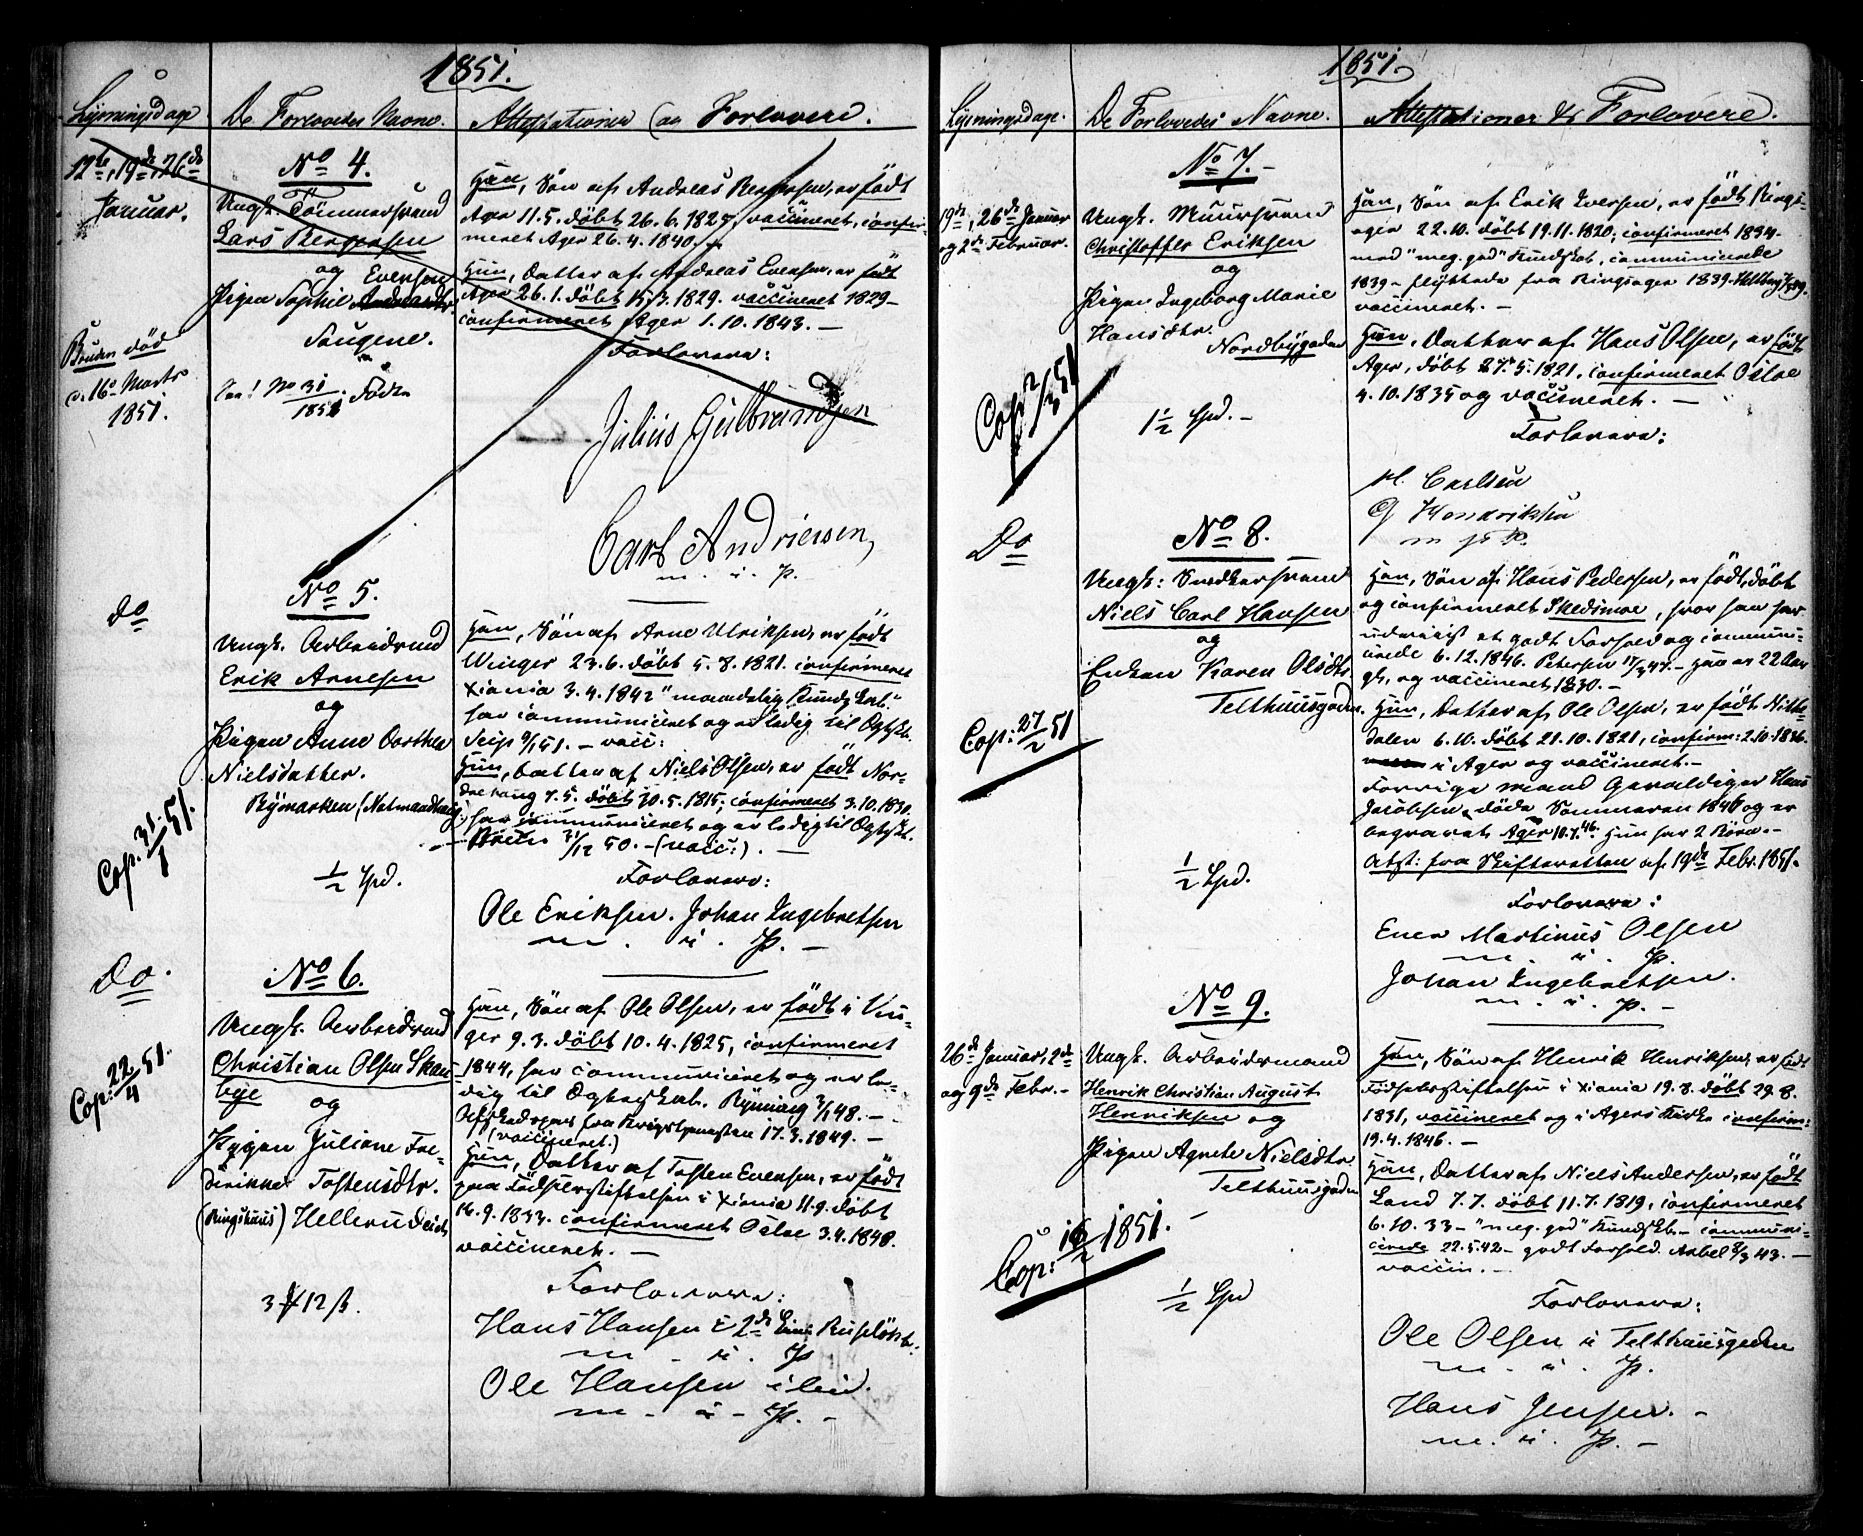 1851.
Lysningsdage. De Forlovedes Navne. Attestationer og Forlovere.
12te, 19de, 26de
Januar.
Bruden død
d. 16. Marts
1851.
No 4.
Ungk. Tømmersvend
Lars Bergersen
og Evensen
Pigen Sophie
Saugene.
No 31
1851
Han, Søn af Andreas Bergersen, er født
Ager 11.5. døbt 26.6.1825, vaccineret, confir-
meret Ager 26.4.1840.
Hun, Datter af Andreas Evensen, er født
Ager 26.1. døbt 15.3.1829. vaccineret 1829 –
confirmeret Ager 1.10.1843. –
Forlovere:
Julius Gulbransen
Carl Andriesen,
m. i. P.
Do
Cop. 31/1 51.
No 5.
Ungk. Arbeidsmd
Erik Arnesen
og
Pigen Anne Dorthea
Nielsdatter.
Rymarken
1/2 Spd.
Han, Søn af Arne Ulriksen, er født
Winger 23.6. døbt 5.8.1821. confirmeret
Xiania 3.4.1842 "maadelig Kundskab."
har communiceret og er ledig til Ægtesk.
51. – vacc:
Hun, Datter af Niels Olsen, er født Nor-
drehaug 7.5. døbt 30.5.1815; confirmeret 3.10.1830.
har communiceret og er ledig til Ægtesk.
31/12 50. – (vacc:). –
Forlovere:
Ole Eriksen. Johan Ingebretsen
m. i. P. –
Do.
Cop: 22/4 51.
No 6.
Ungk. Arbeidsmd
Christian Olsen Skau-
bye og
Pigen Juliane Fre-
derikke Tostensdtr.
(Ringshuus) Hellerudeie
3 12 ß.
Han, Søn af Ole Olsen, er født i Vin-
ger 9.3. døbt 10.4.1825, confirmeret
1844, har communiceret og er le-
dig til Ægteskab. Rynning 48. –
Afskedspas fra Krigstjenesten 17.3.1849. –
(vaccineret.)
Hun, Datter af Tosten Evensen, er født
paa Fødselsstiftelsen i Xiania 11.9. døbt
16.9.1833. confirmeret Osloe 3.4.1848.
vaccineret. –
Forlovere:
Hans Hansen i 2de Ruseløkb.
m. i. P
Ole Hansen
m. i. P. –
1851.
Lysningsdage. De Forlovedes Navne. Attestationer & Forlovere.
19de, 26de Januar
og 2de Februar.
Cop. 2/3 51
No 7. –
Ungk. Muursvend
Christoffer Eriksen
og
Pigen Ingeborg Marie
Hansdtr.
Nordbygaden
1 1/2 Spd. –
Han, Søn af Erik Iversen, er født Rings-
ager 22.10. døbt 19.11.1820; confirmeret 1834 –
med "meg. god" Kundskab, communicerede
1839 – flyttede fra Ringsager 1839.
vaccineret. –
Hun, Datter af Hans Olsen, er født
Ager, døbt 27.5.1821, confirmeret Osloe
4.10.1835 og vaccineret. –
Forlovere:
H. Carlsen
G Hendriksen
m p P.
Do
Cop: 27/2 51
No 8.
Ungk: Snedkersvend
Niels Carl Hansen
og
Enken Karen Olsdtr.
Telthuusgaden.
1/2 Spd.
Han, Søn af Hans Pedersen, er født, døbt
og confirmeret Skedsmoe, hvor han har
udviist et godt Forhold og communi-
cerede 6.12.1846. Petersen 17/3 47. – Han er 22 Aar
gl., og vaccineret 1830. –
Hun, Datter af Ole Olsen, er født Nitte-
dalen 6.10. døbt 21.10.1821, confirm: 2.10.1836.
i Ager og vaccineret. –
Forrige Mand Gevaldiger Hans
Jacobsen døde Sommeren 1846 og er
begravet Ager 10.7.46. Hun har 2 Børn. –
Attst: fra Skifteretten af 19de Febr. 1851.
Forlovere:
Ener Martinus Olsen
m. i. P.
Johan Ingebretsen.
m. i. P. –
26de Januar, 2de
og 9de Febr. –
Cop: 16/2 1851.
No 9.
Ungk. Arbeidsmand
Henrik Christian August
Henriksen og
Pigen Agnete Nielsdtr.
Telthuusgaden
–
1/2 Spd
Han, Søn af Henrik Henriksen, er født
Fødselsstiftelsen i Xiania 19.8. døbt 29.8.
1831, vaccineret og i Agers Kirke confirm:
19.4.1846. –
Hun, Datter af Niels Andersen, er født
Land 7.7. døbt 11.7.1819, confirmeret
6.10.33 – "meg. god" Kundskb. – communi-
cerede 22.5.42 – godt Forhold. Aabel 43. –
vaccin. –
Forlovere:
Ole Olsen i Telthuusgaden
m. i. P.
Hans Jensen. –
m. i. P. –